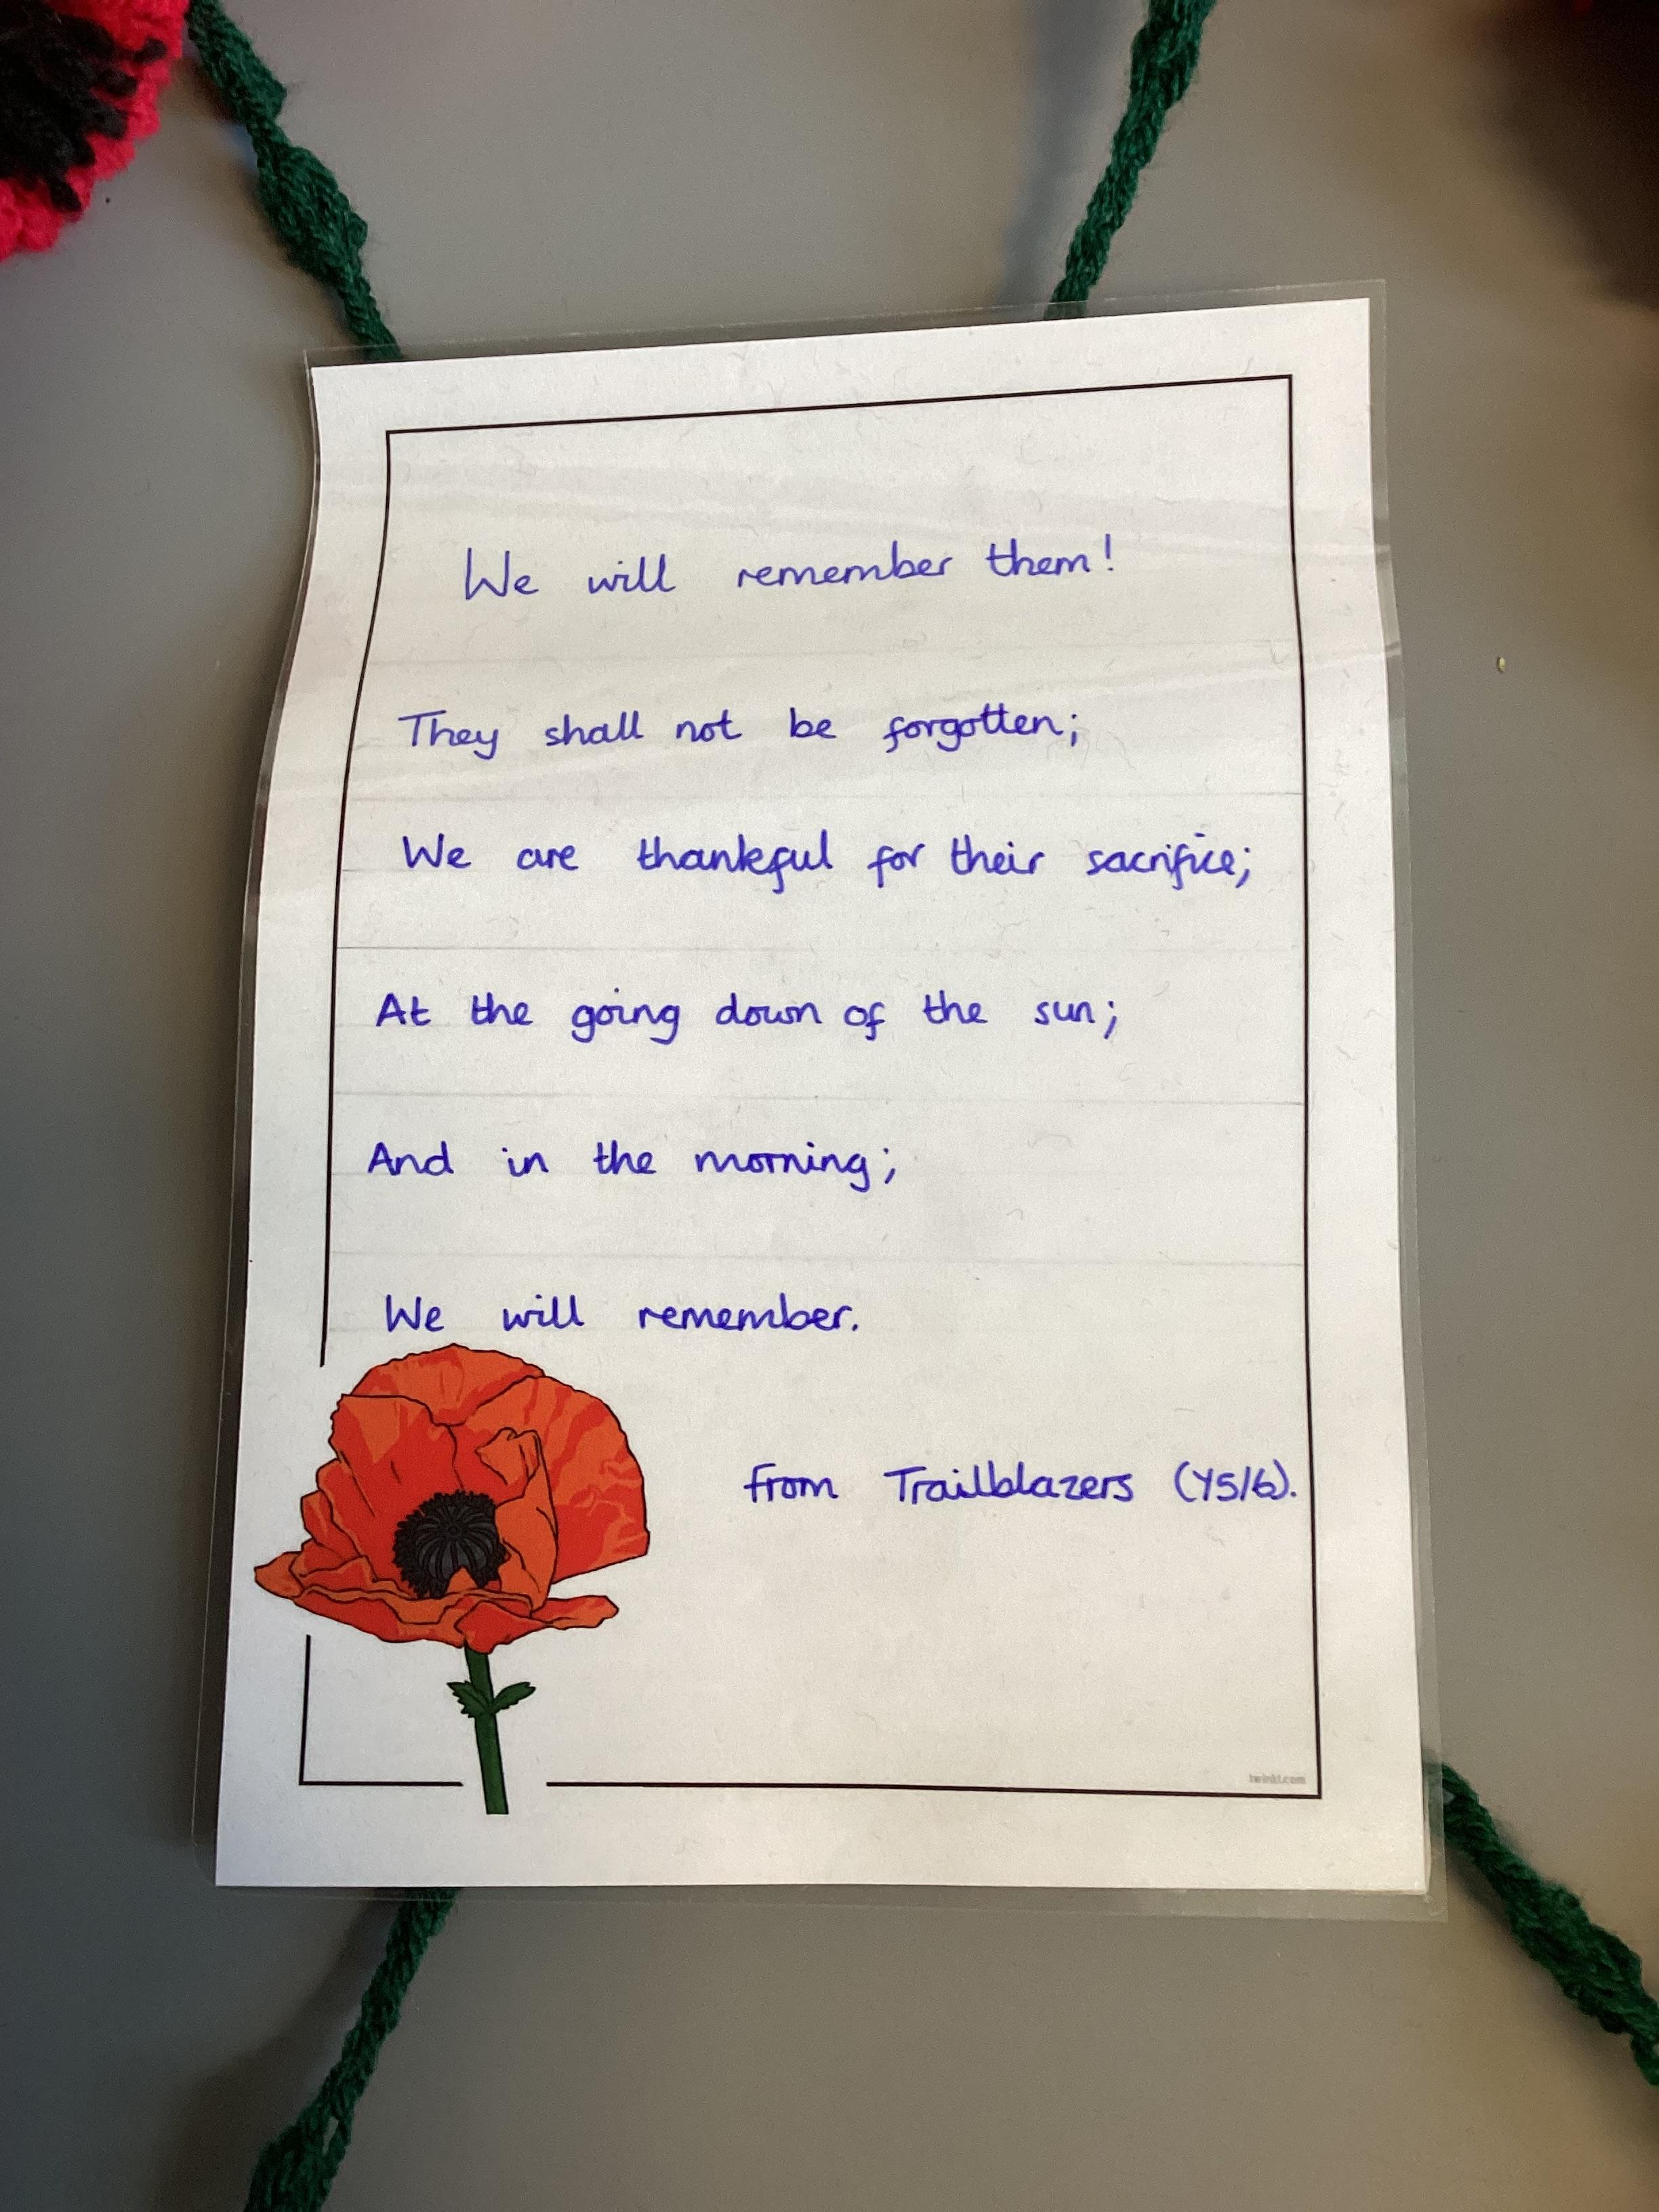 We will remember them!
They shall not be forgotten;
We are thankful for their sacrifice;
At the going down of the sun;
And in the morning;
We will remember.
from Trailblazers (Y5/6).
twinkl.com